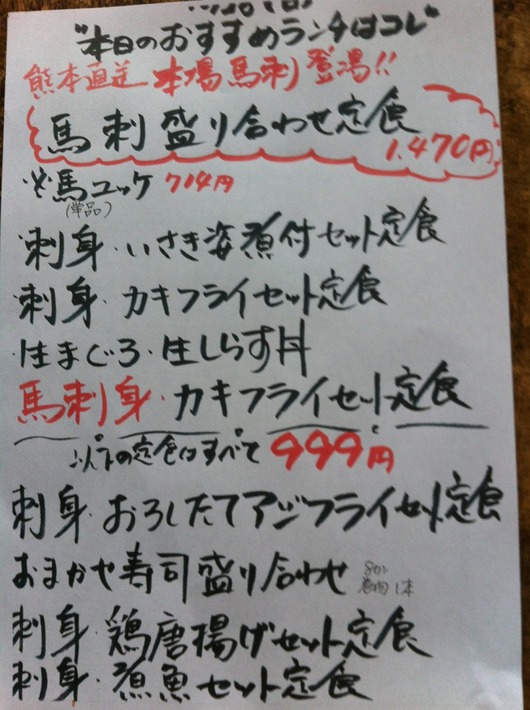 "本日のおすすめランチはコレ"
熊本直送 本場馬刺登場!!
馬刺盛り合わせ定食
1,470円
馬ユッケ 714円
(単品)
刺身・いさき姿煮付セット定食
刺身・カキフライセット定食
生まぐろ・生しらす丼
馬刺身・カキフライセット定食
以下の定食はすべて 999円
刺身・おろしたてアジフライセット定食
おまかせ寿司盛り合わせ
刺身・鶏唐揚げセット定食
刺身・煮魚セット定食